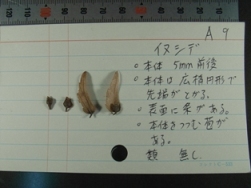 A 9
イヌシデ
○本体 5mm 前後
○本体は広楕円形で
先端がとがる。
○表面に条がある。
○本体をつつむ苞が
ある。
類 無し